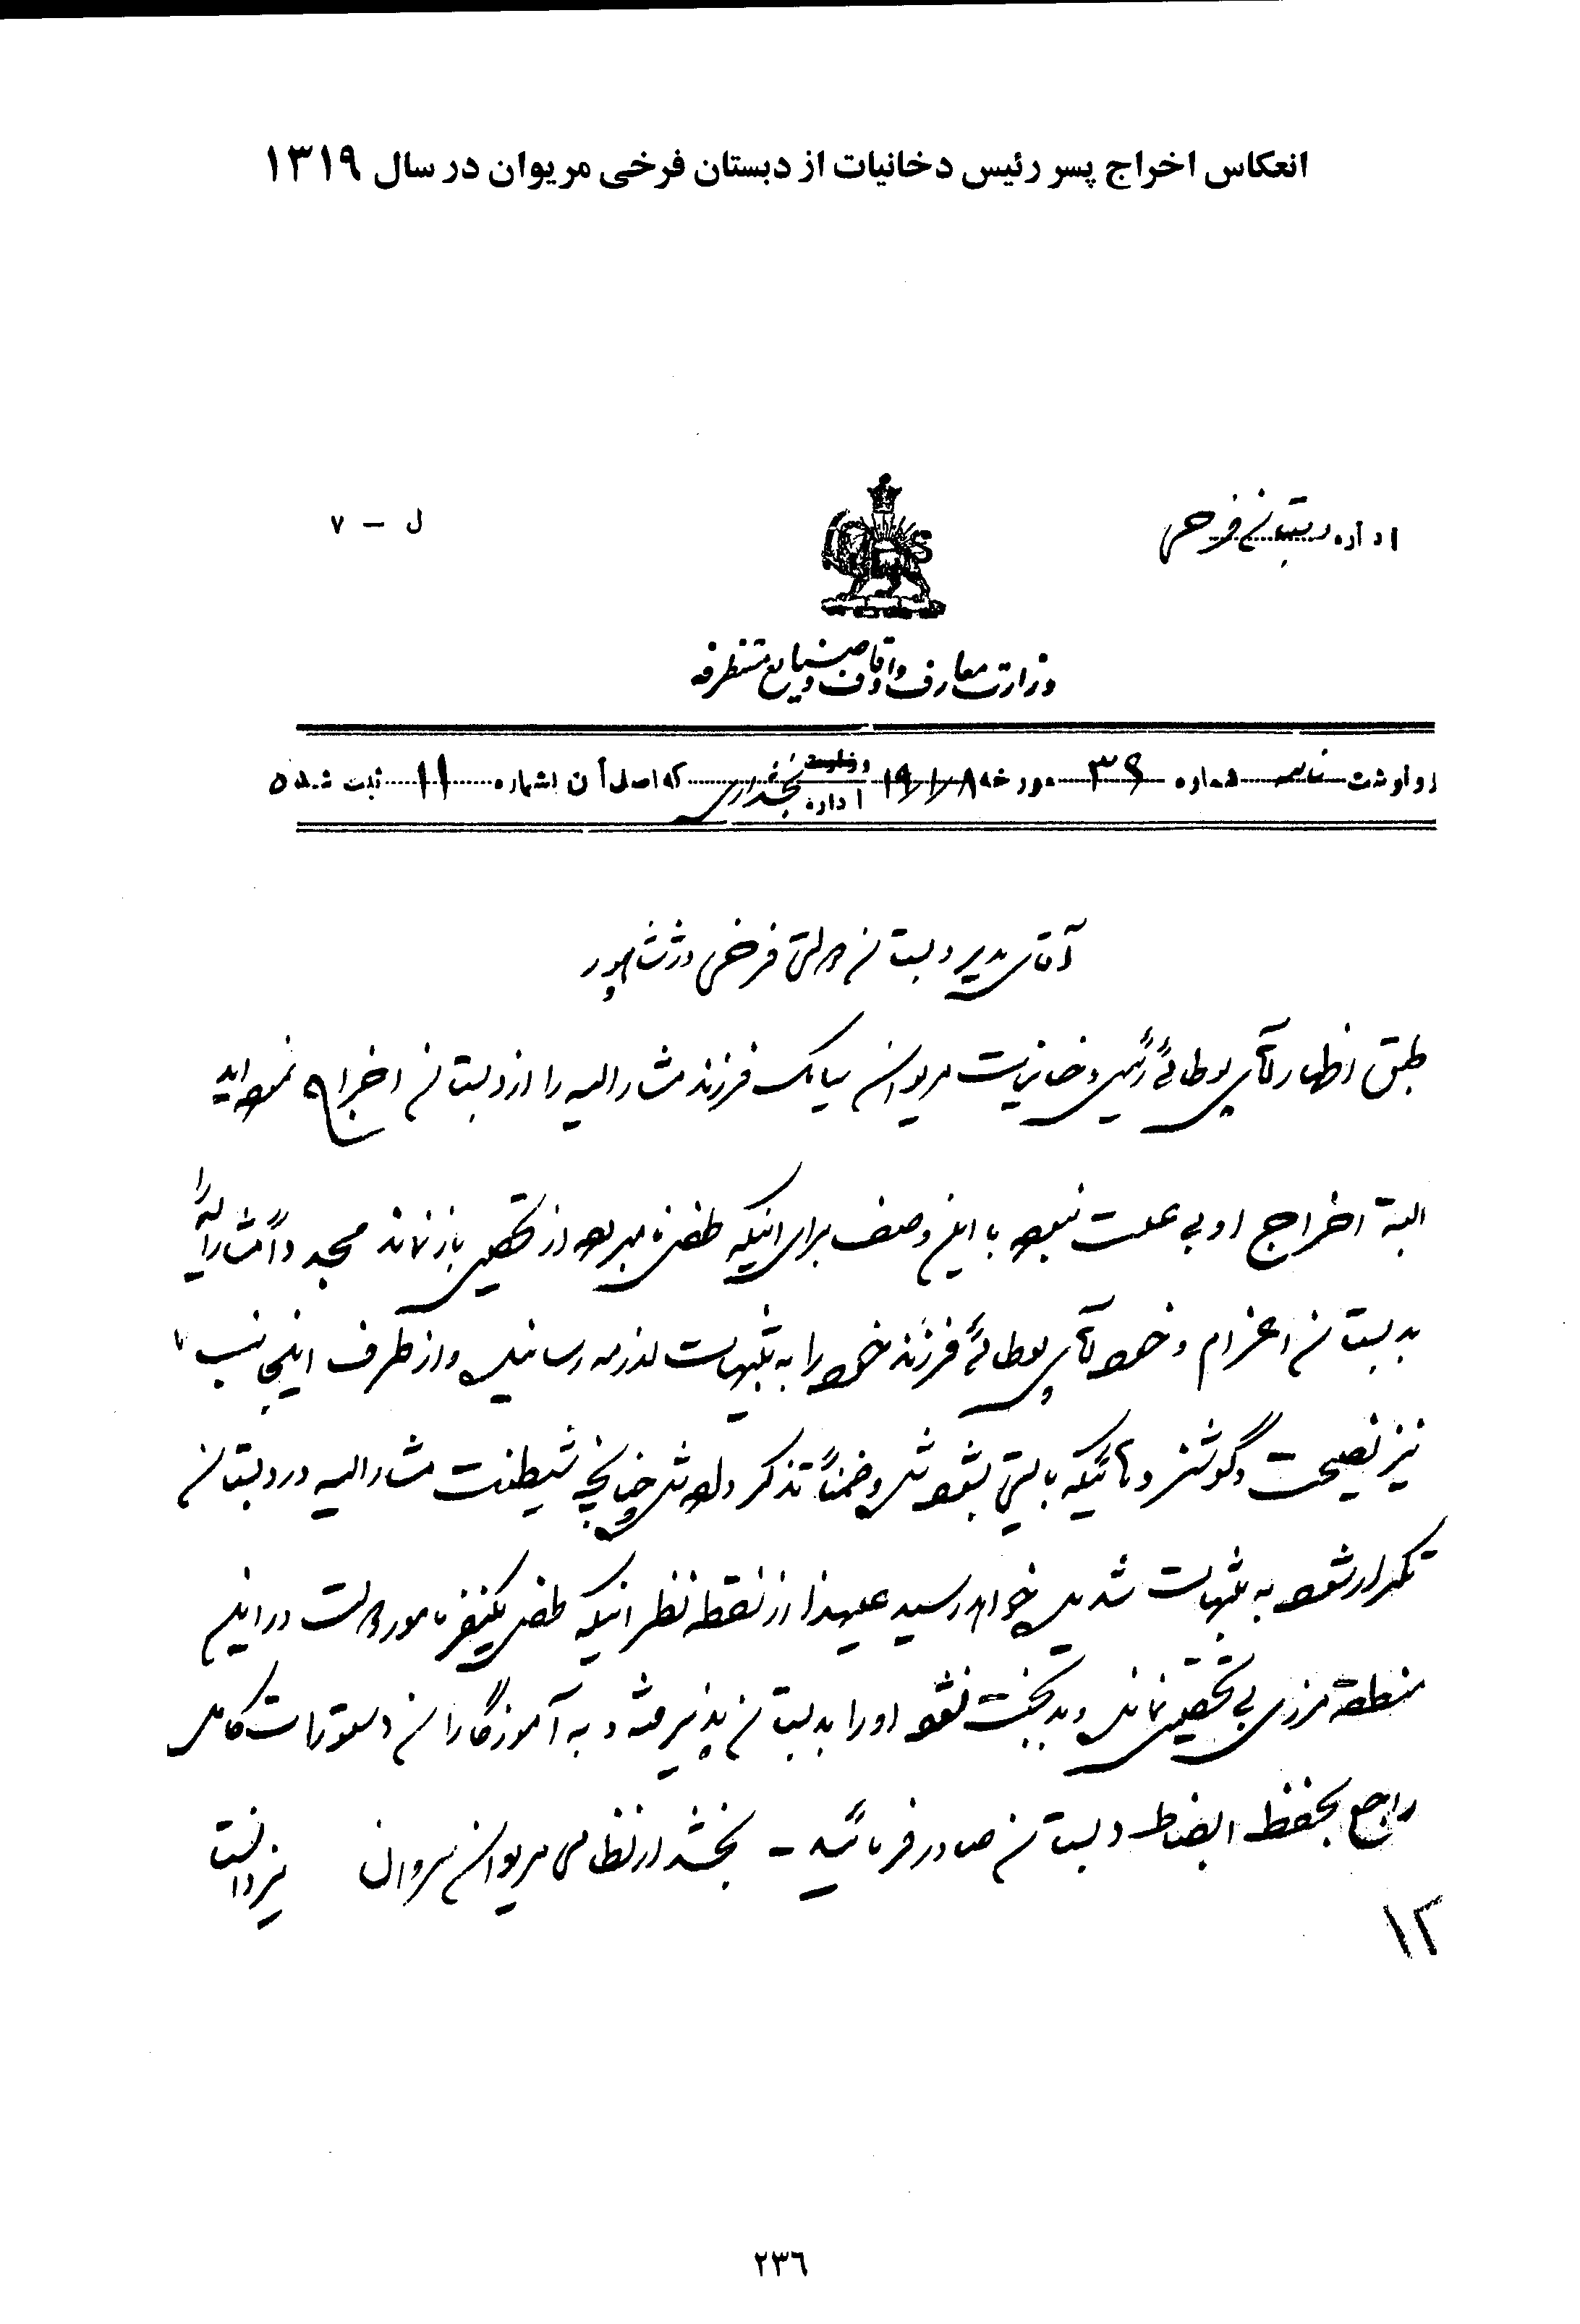 انعکاس اخراج پسر رئیس دخانیات از دبستان فرخی مریوان در سال ۱۳۱۹
اداره دبستان فرخی
ل - ۷
وزارت معارف و اوقاف و صنایع مستظرفه
رونوشت نامه شماره ۳۶ مورخه ۱۹/۱/۸ وزارت اداره بخشداری که اصل آن بشماره ۱۱ ثبت شده
آقای مدیر دبستان دولتی فرخی دژشاهپور
طبق اظهار آقای یوطائی رئیس دخانیات مریوان سیامک فرزند مشارالیه را از دبستان اخراج نموده‌اید
البته اخراج او بی علت نبوده با این وصف برای اینکه طفل نامبرده از تحصیل باز نماند مجدداً مشارالیه را
بدبستان اعزام و خود آقای یوطائی فرزند خود را به تنبیهات لازمه رسانیده و از طرف اینجانب
نیز نصیحت و گوشزدهائیکه بایستی بشود شده و ضمناً تذکر داده شد چنانچه شیطنت مشارالیه در دبستان
تکرار شود به تنبیهات شدید خواهد رسید علیهذا از نقطه نظر اینکه طفل یکنفر مامور دولت در این
منطقه مرزی بی تحصیل نماند و بدبخت نشود او را بدبستان پذیرفته و به آموزگاران دستورات کامل
راجع بحفظ انضباط دبستان صادر فرمائید - بخشدار نظامی مریوان سروان یزدانست
۱۲
۲۳۶